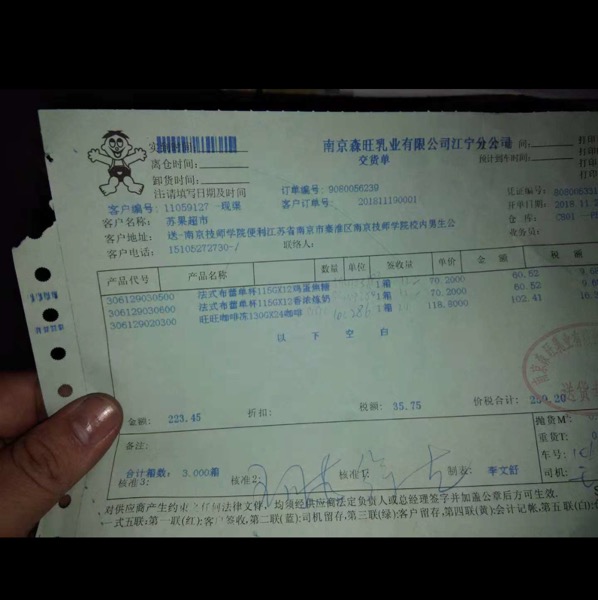 南京森旺乳业有限公司江宁分公司
交货单
离仓时间:
卸货时间:
预计到车时间:
注:请填写日期及时间
订单编号: 9080056239
客户编号: 11059127 -现渠
客户订单号: 201811190001
客户名称: 苏果超市
客户地址: 送-南京技师学院便利江苏省南京市秦淮区南京技师学院校内男生公
客户电话: 15105272730-/ 联络人:
业务员:
产品代号 产品名称 数量 单位 签收量 单价 金额 税额
306129030500 法式布蕾单杯115GX12鸡蛋焦糖 1箱 70.2000 60.52
306129030600 法式布蕾单杯115GX12香浓炼奶 1箱 70.2000 60.52
306129020300 旺旺咖啡冻130GX24咖啡 1箱 118.8000 102.41
以下空白
金额: 223.45 折扣: 税额: 35.75 价税合计: 259.20
抛货M³:
备注:
重货T:
车号:
合计箱数: 3.000箱
核准3: 核准2: 核准1: 制表: 李文舒 司机:
对供应商产生约束之任何法律文件,均须经供应商法定负责人或总经理签字并加盖公章后方可生效。
一式五联:第一联(红):客户签收,第二联(蓝):司机留存,第三联(绿):客户留存,第四联(黄):会计记帐,第五联(白):